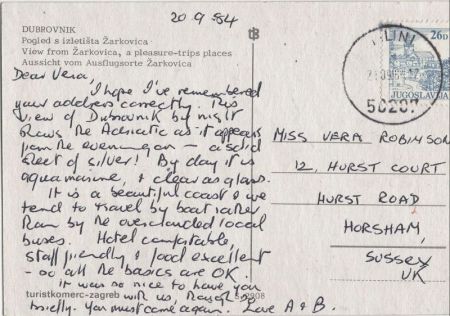 20.9.84
DUBROVNIK
Pogled s izletišta Žarkovica
View from Žarkovica, a pleasure-trips places
Aussicht vom Ausflugsorte Žarkovica
Dear Vera,
I hope I've remembered
your address correctly. This
view of Dubrovnik by night
shows the Adriatic as it appears
from the evening on – a solid
sheet of silver! By day it is
aquamarine, & clear as glass.
It is a beautiful coast & we
tend to travel by boat rather
than by the overcrowded local
buses. Hotel comfortable,
staff friendly & food excellent
– so all the basics are OK.
It was so nice to have you
with us, though
briefly. You must come again. Love A & B.
turistkomerc-zagreb
26D
JUGOSLAVIJA
50207
MISS VERA ROBINSON
12, HURST COURT
HURST ROAD
HORSHAM,
SUSSEX
UK